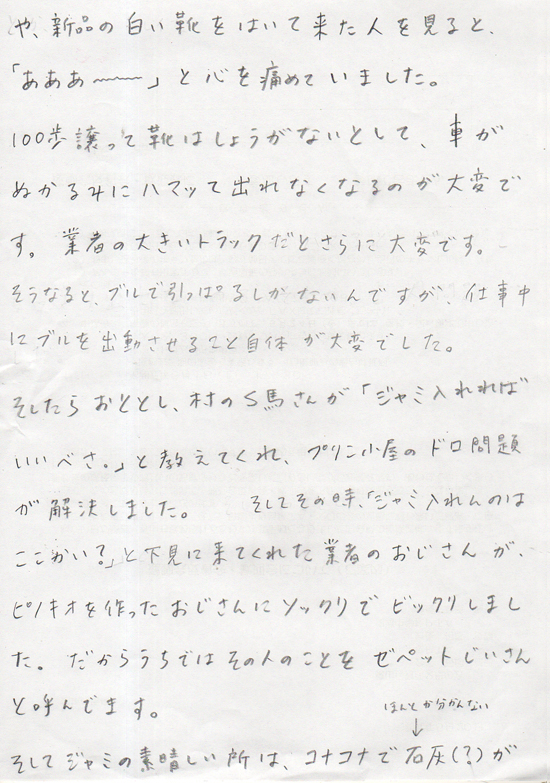 や、新品の白い靴をはいて来た人を見ると、
「あああ〜〜〜」と心を痛めていました。
100歩譲って靴はしょうがないとして、車が
ぬかるみにハマッて出れなくなるのが大変で
す。業者の大きいトラックだとさらに大変です。
そうなると、ブルで引っぱるしかないんですが、仕事中
にブルを出動させること自体が大変でした。
そしたらおととし、村のS馬さんが「ジャミ入れれば
いいべさ。」と教えてくれ、プリン小屋のドロ問題
が解決しました。 そしてその時、「ジャミ入れんのは
ここかい?」と下見に来てくれた業者のおじさんが、
ピノキオを作ったおじさんにソックリでビックリしまし
た。だからうちではその人のことをゼペットじいさん
と呼んでます。
ほんとか分かんない
↓
そしてジャミの素晴しい所は、コナコナで石灰(?)が